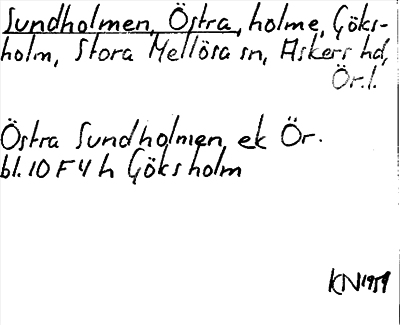 Sundholmen, Östra, holme, Göks-
holm, Stora Mellösa sn, Askers hd,
Ör.l.
Östra Sundholmen, ek Ör.
bl. 10 F 4 h Göksholm
KN 1959